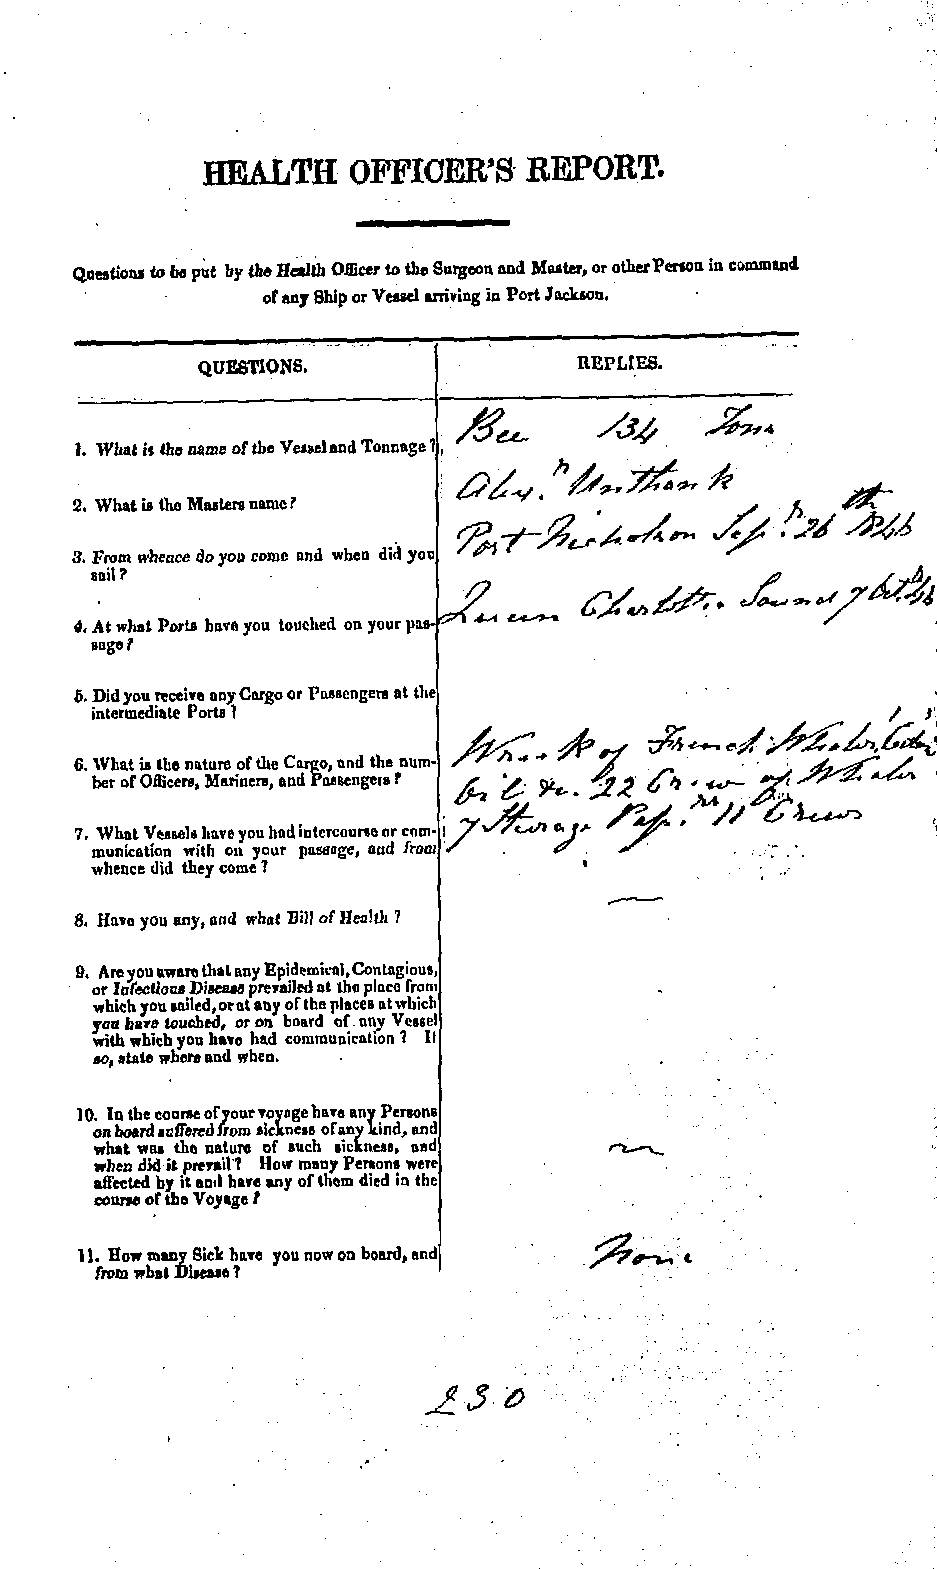 HEALTH OFFICER'S REPORT.
Questions to be put by the Health Officer to the Surgeon and Master, or other Person in command
of any Ship or Vessel arriving in Port Jackson.
QUESTIONS.
REPLIES.
1. What is the name of the Vessel and Tonnage?
Bee 134 Tons
2. What is the Masters name?
Alexr. Unthank
3. From whence do you come and when did you
sail?
Port Nicholson Sepr. 26th
4. At what Ports have you touched on your pas-
sage?
Queen Charlotte Sound 7 Octr
5. Did you receive any Cargo or Passengers at the
intermediate Ports?
6. What is the nature of the Cargo, and the num-
ber of Officers, Mariners, and Passengers?
Wreck of French Whaler
Oil &c. 22 Crew of Whaler
7. What Vessels have you had intercourse or com-
munication with on your passage, and from
whence did they come?
7 Steerage Passrs. 11 Crew
8. Have you any, and what Bill of Health?
9. Are you aware that any Epidemical, Contagious,
or Infectious Disease prevailed at the place from
which you sailed, or at any of the places at which
you have touched, or on board of any Vessel
with which you have had communication? If
so, state where and when.
10. In the course of your voyage have any Persons
on board suffered from sickness of any kind, and
what was the nature of such sickness, and
when did it prevail? How many Persons were
affected by it and have any of them died in the
course of the Voyage?
11. How many Sick have you now on board, and
from what Disease?
None
230